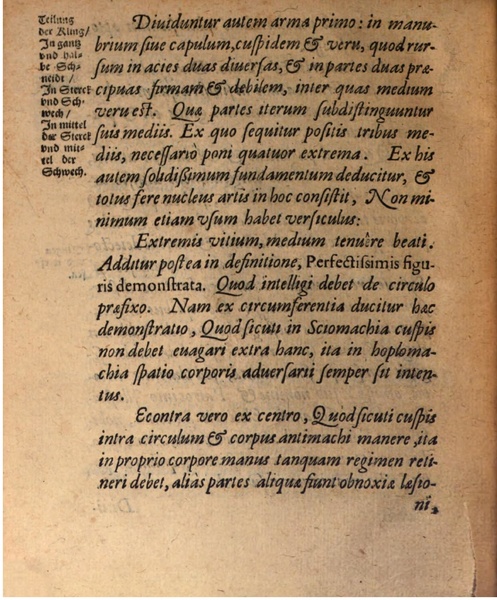 Teilung
der Kling/
In gantz
vnd hal-
be Sch-
neidt/
In Sterck
vnd Sch-
wech/
In mittel
der Sterck
vnd mit-
tel der
Schwech.
Diuiduntur autem arma primo: in manu-
brium siue capulum, cuspidem & veru, quod rur-
sum in acies duas diuersas, & in partes duas præ-
cipuas firmam & debilem, inter quas medium
veru est. Quæ partes iterum subdistinguuntur
suis mediis. Ex quo sequitur positis tribus me-
diis, necessariò poni quatuor extrema. Ex his
autem solidissimum fundamentum deducitur, &
totus fere nucleus artis in hoc consistit, Non mi-
nimum etiam vsum habet versiculus:
Extremis vitium, medium tenuêre beati.
Additur postea in definitione, Perfectissimis figu-
ris demonstrata. Quod intelligi debet de circulo
præfixo. Nam ex circumferentia ducitur hæc
demonstratio, Quod sicuti in Sciomachia cuspis
non debet euagari extra hanc, ita in hoploma-
chia spatio corporis aduersarii semper sit inten-
tus.
Econtra vero ex centro, Quod sicuti cuspis
intra circulum & corpus antimachi manere, ita
in proprio corpore manus tanquam regimen reti-
neri debet, aliàs partes aliquæ fiunt obnoxiæ læsio-
ni,